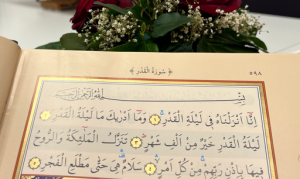 ٥٩٨ ﴿ سُورَةُ الْقَدْرِ ﴾
بِسْمِ اللّٰهِ الرَّحْمٰنِ الرَّحِيمِ
اِنَّٓا اَنْزَلْنَاهُ فٖى لَيْلَةِ الْقَدْرِ ﴿١﴾ وَمَٓا اَدْرٰيكَ مَا لَيْلَةُ الْقَدْرِ ﴿٢﴾
لَيْلَةُ الْقَدْرِ خَيْرٌ مِنْ اَلْفِ شَهْرٍ ﴿٣﴾ تَنَزَّلُ الْمَلٰٓئِكَةُ وَالرُّوحُ
فٖيهَا بِاِذْنِ رَبِّهِمْ مِنْ كُلِّ اَمْرٍ ﴿٤﴾ سَلَامٌ هِىَ حَتّٰى مَطْلَعِ الْفَجْرِ ﴿٥﴾